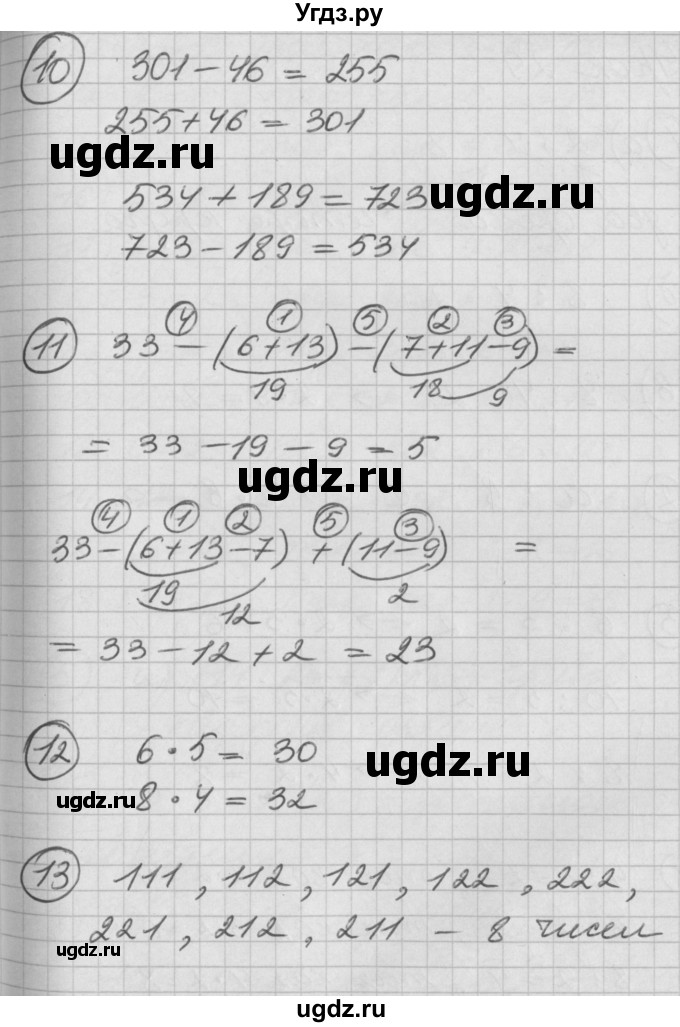 Угдз.ру
10 301 - 46 = 255
255 + 46 = 301
ugdz.ru
534 + 189 = 723
ugdz.ru
723 - 189 = 534
4 1 5 2 3
11 33 - (6 + 13) - (7 + 11 - 9) =
19 18 9
= 33 - 19 - 9 = 5
ugdz.ru
4 1 2 5 3
33 - (6 + 13 - 7) + (11 - 9) =
19 12 2
= 33 - 12 + 2 = 23
12 6 · 5 = 30
ugdz.ru
ugdz.ru
8 · 4 = 32
13 111, 112, 121, 122, 222,
221, 212, 211 - 8 чисел
ugdz.ru
ugdz.ru